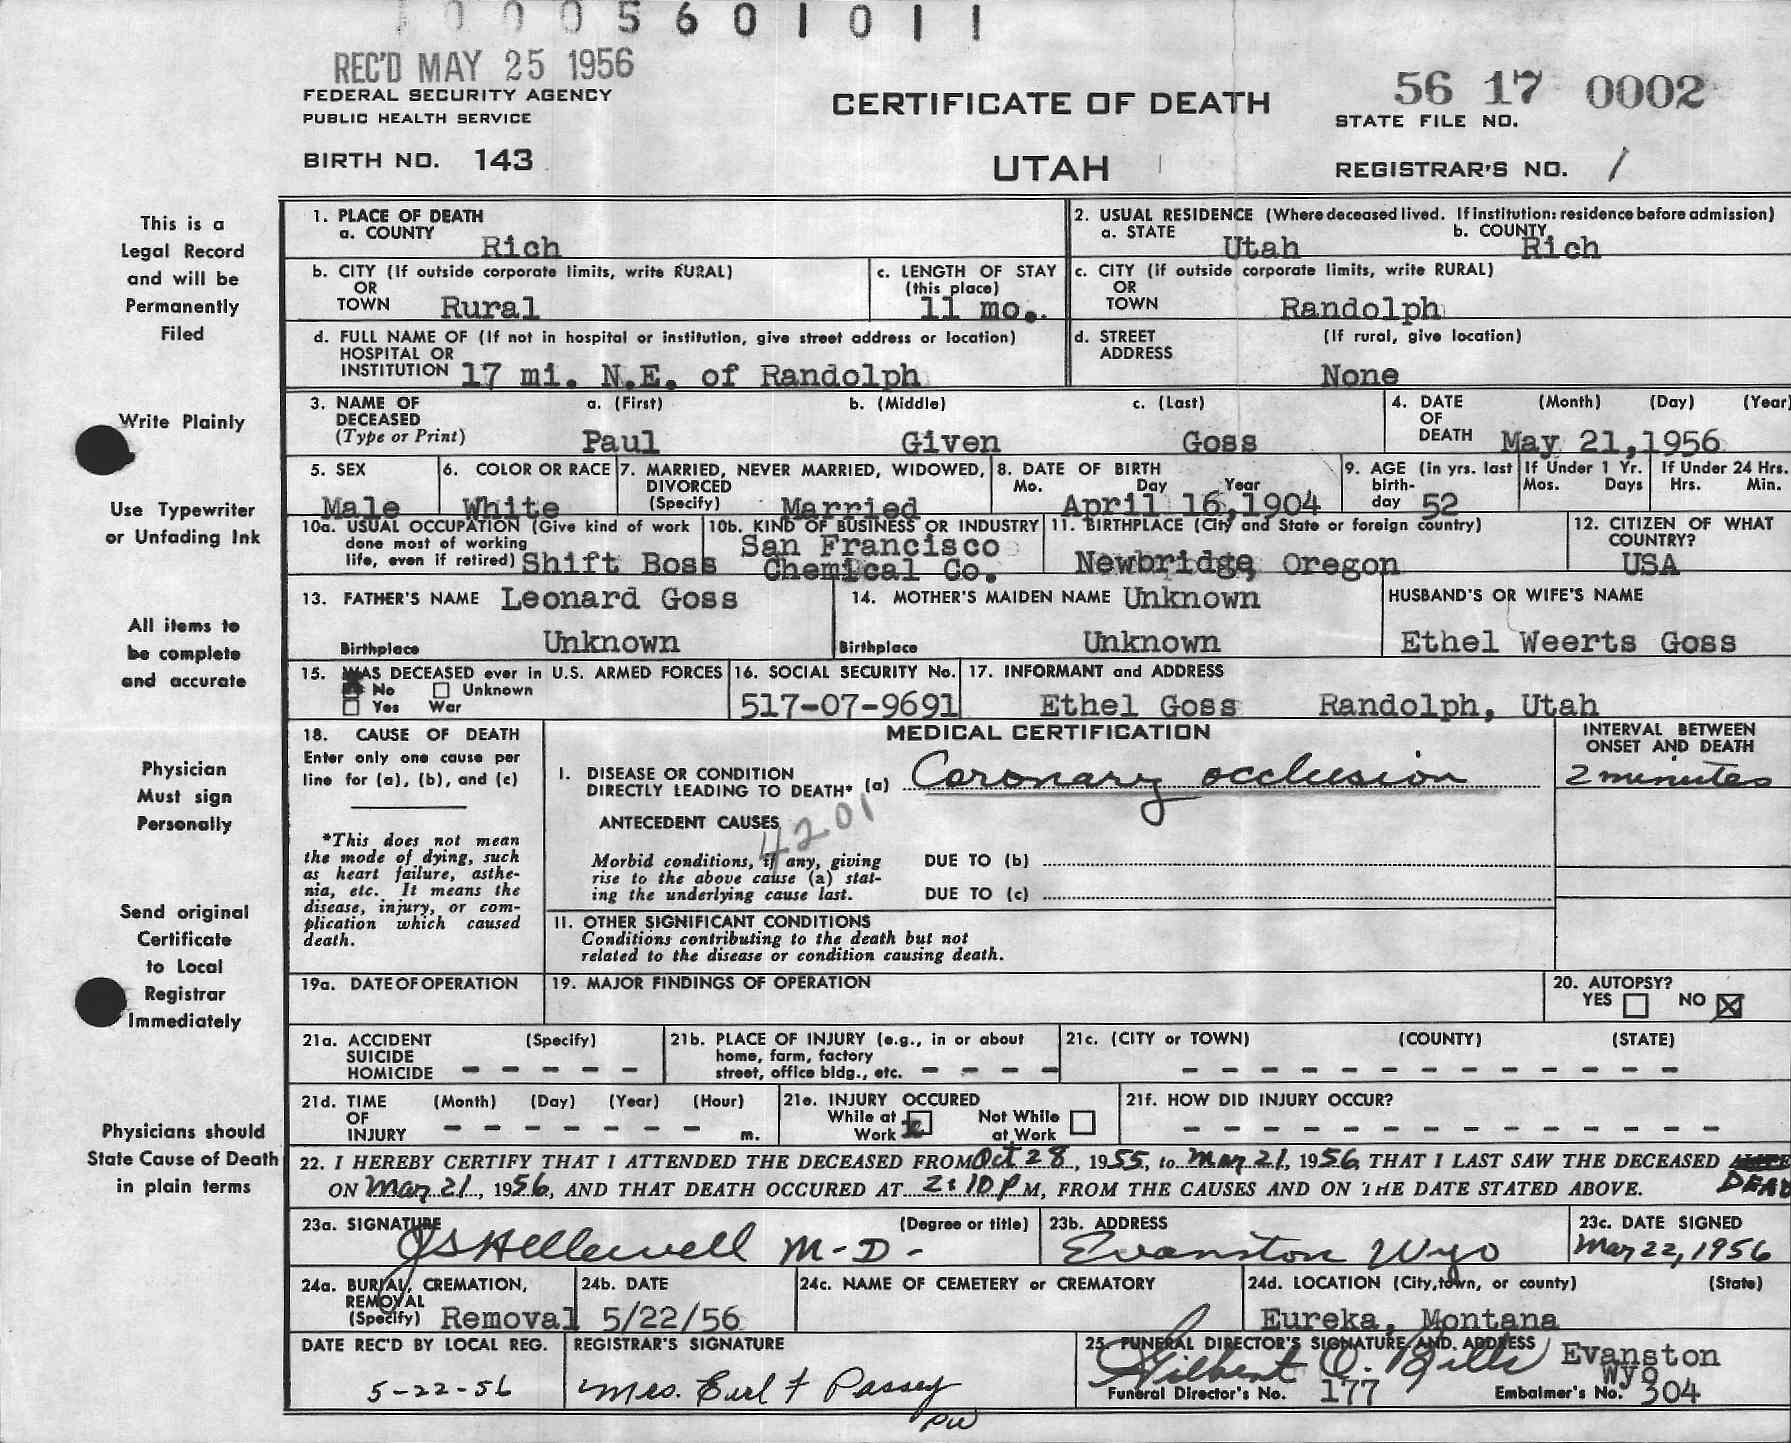 0005601011
REC'D MAY 25 1956
FEDERAL SECURITY AGENCY
PUBLIC HEALTH SERVICE
BIRTH NO. 143
CERTIFICATE OF DEATH
UTAH
56 17 0002
STATE FILE NO.
REGISTRAR'S NO. 1
This is a
Legal Record
and will be
Permanently
Filed
Write Plainly
Use Typewriter
or Unfading Ink
All items to
be complete
and accurate
Physician
Must sign
Personally
Send original
Certificate
to Local
Registrar
Immediately
Physicians should
State Cause of Death
in plain terms
1. PLACE OF DEATH
a. COUNTY Rich
2. USUAL RESIDENCE (Where deceased lived. If institution: residence before admission)
a. STATE Utah b. COUNTY Rich
b. CITY (If outside corporate limits, write RURAL)
OR
TOWN Rural
c. LENGTH OF STAY
(this place)
11 mo.
c. CITY (if outside corporate limits, write RURAL)
OR
TOWN Randolph
d. FULL NAME OF (If not in hospital or institution, give street address or location)
HOSPITAL OR
INSTITUTION 17 mi. N.E. of Randolph
d. STREET (If rural, give location)
ADDRESS
None
3. NAME OF a. (First) b. (Middle) c. (Last)
DECEASED
(Type or Print) Paul Given Goss
4. DATE (Month) (Day) (Year)
OF
DEATH May 21,1956
5. SEX
Male
6. COLOR OR RACE
White
7. MARRIED, NEVER MARRIED, WIDOWED,
DIVORCED
(Specify) Married
8. DATE OF BIRTH
Mo. Day Year
April 16,1904
9. AGE (in yrs. last
birth-
day 52
If Under 1 Yr.
Mos. Days
If Under 24 Hrs.
Hrs. Min.
10a. USUAL OCCUPATION (Give kind of work
done most of working
life, even if retired) Shift Boss
10b. KIND OF BUSINESS OR INDUSTRY
San Francisco
Chemical Co.
11. BIRTHPLACE (City and State or foreign country)
Newbridge, Oregon
12. CITIZEN OF WHAT
COUNTRY?
USA
13. FATHER'S NAME Leonard Goss
Birthplace Unknown
14. MOTHER'S MAIDEN NAME Unknown
Birthplace Unknown
HUSBAND'S OR WIFE'S NAME
Ethel Weerts Goss
15. WAS DECEASED ever in U.S. ARMED FORCES
No Unknown
Yes War
16. SOCIAL SECURITY No.
517-07-9691
17. INFORMANT and ADDRESS
Ethel Goss Randolph, Utah
18. CAUSE OF DEATH
Enter only one cause per
line for (a), (b), and (c)
*This does not mean
the mode of dying, such
as heart failure, asthe-
nia, etc. It means the
disease, injury, or com-
plication which caused
death.
MEDICAL CERTIFICATION
INTERVAL BETWEEN
ONSET AND DEATH
I. DISEASE OR CONDITION
DIRECTLY LEADING TO DEATH* (a) Coronary occlusion 2 minutes
ANTECEDENT CAUSES
4201
Morbid conditions, if any, giving
rise to the above cause (a) stat-
ing the underlying cause last.
DUE TO (b)
DUE TO (c)
II. OTHER SIGNIFICANT CONDITIONS
Conditions contributing to the death but not
related to the disease or condition causing death.
19a. DATE OF OPERATION
19. MAJOR FINDINGS OF OPERATION
20. AUTOPSY?
YES NO
21a. ACCIDENT (Specify)
SUICIDE
HOMICIDE - - - - - -
21b. PLACE OF INJURY (e.g., in or about
home, farm, factory
street, office bldg., etc. - - - -
21c. (CITY or TOWN) (COUNTY) (STATE)
- - - - - - - - - - - - - -
21d. TIME (Month) (Day) (Year) (Hour)
OF
INJURY - - - - - - - m.
21e. INJURY OCCURED
While at Work Not While at Work
21f. HOW DID INJURY OCCUR?
- - - - - - - - - - - - - -
22. I HEREBY CERTIFY THAT I ATTENDED THE DECEASED FROM Oct 28, 1955, to May 21, 1956 THAT I LAST SAW THE DECEASED ALIVE
DEAD
ON May 21, 1956, AND THAT DEATH OCCURED AT 2:10 P M, FROM THE CAUSES AND ON THE DATE STATED ABOVE.
23a. SIGNATURE (Degree or title)
JS Hellewell M-D-
23b. ADDRESS
Evanston Wyo
23c. DATE SIGNED
May 22, 1956
24a. BURIAL, CREMATION,
REMOVAL
(Specify) Removal
24b. DATE
5/22/56
24c. NAME OF CEMETERY or CREMATORY
24d. LOCATION (City, town, or county) (State)
Eureka, Montana
DATE REC'D BY LOCAL REG.
5-22-56
REGISTRAR'S SIGNATURE
Mrs. Earl F Passey
PW
25. FUNERAL DIRECTOR'S SIGNATURE AND ADDRESS
Gilbert O. Bills Evanston
Wyo
Funeral Director's No. 177 Embalmer's No. 304